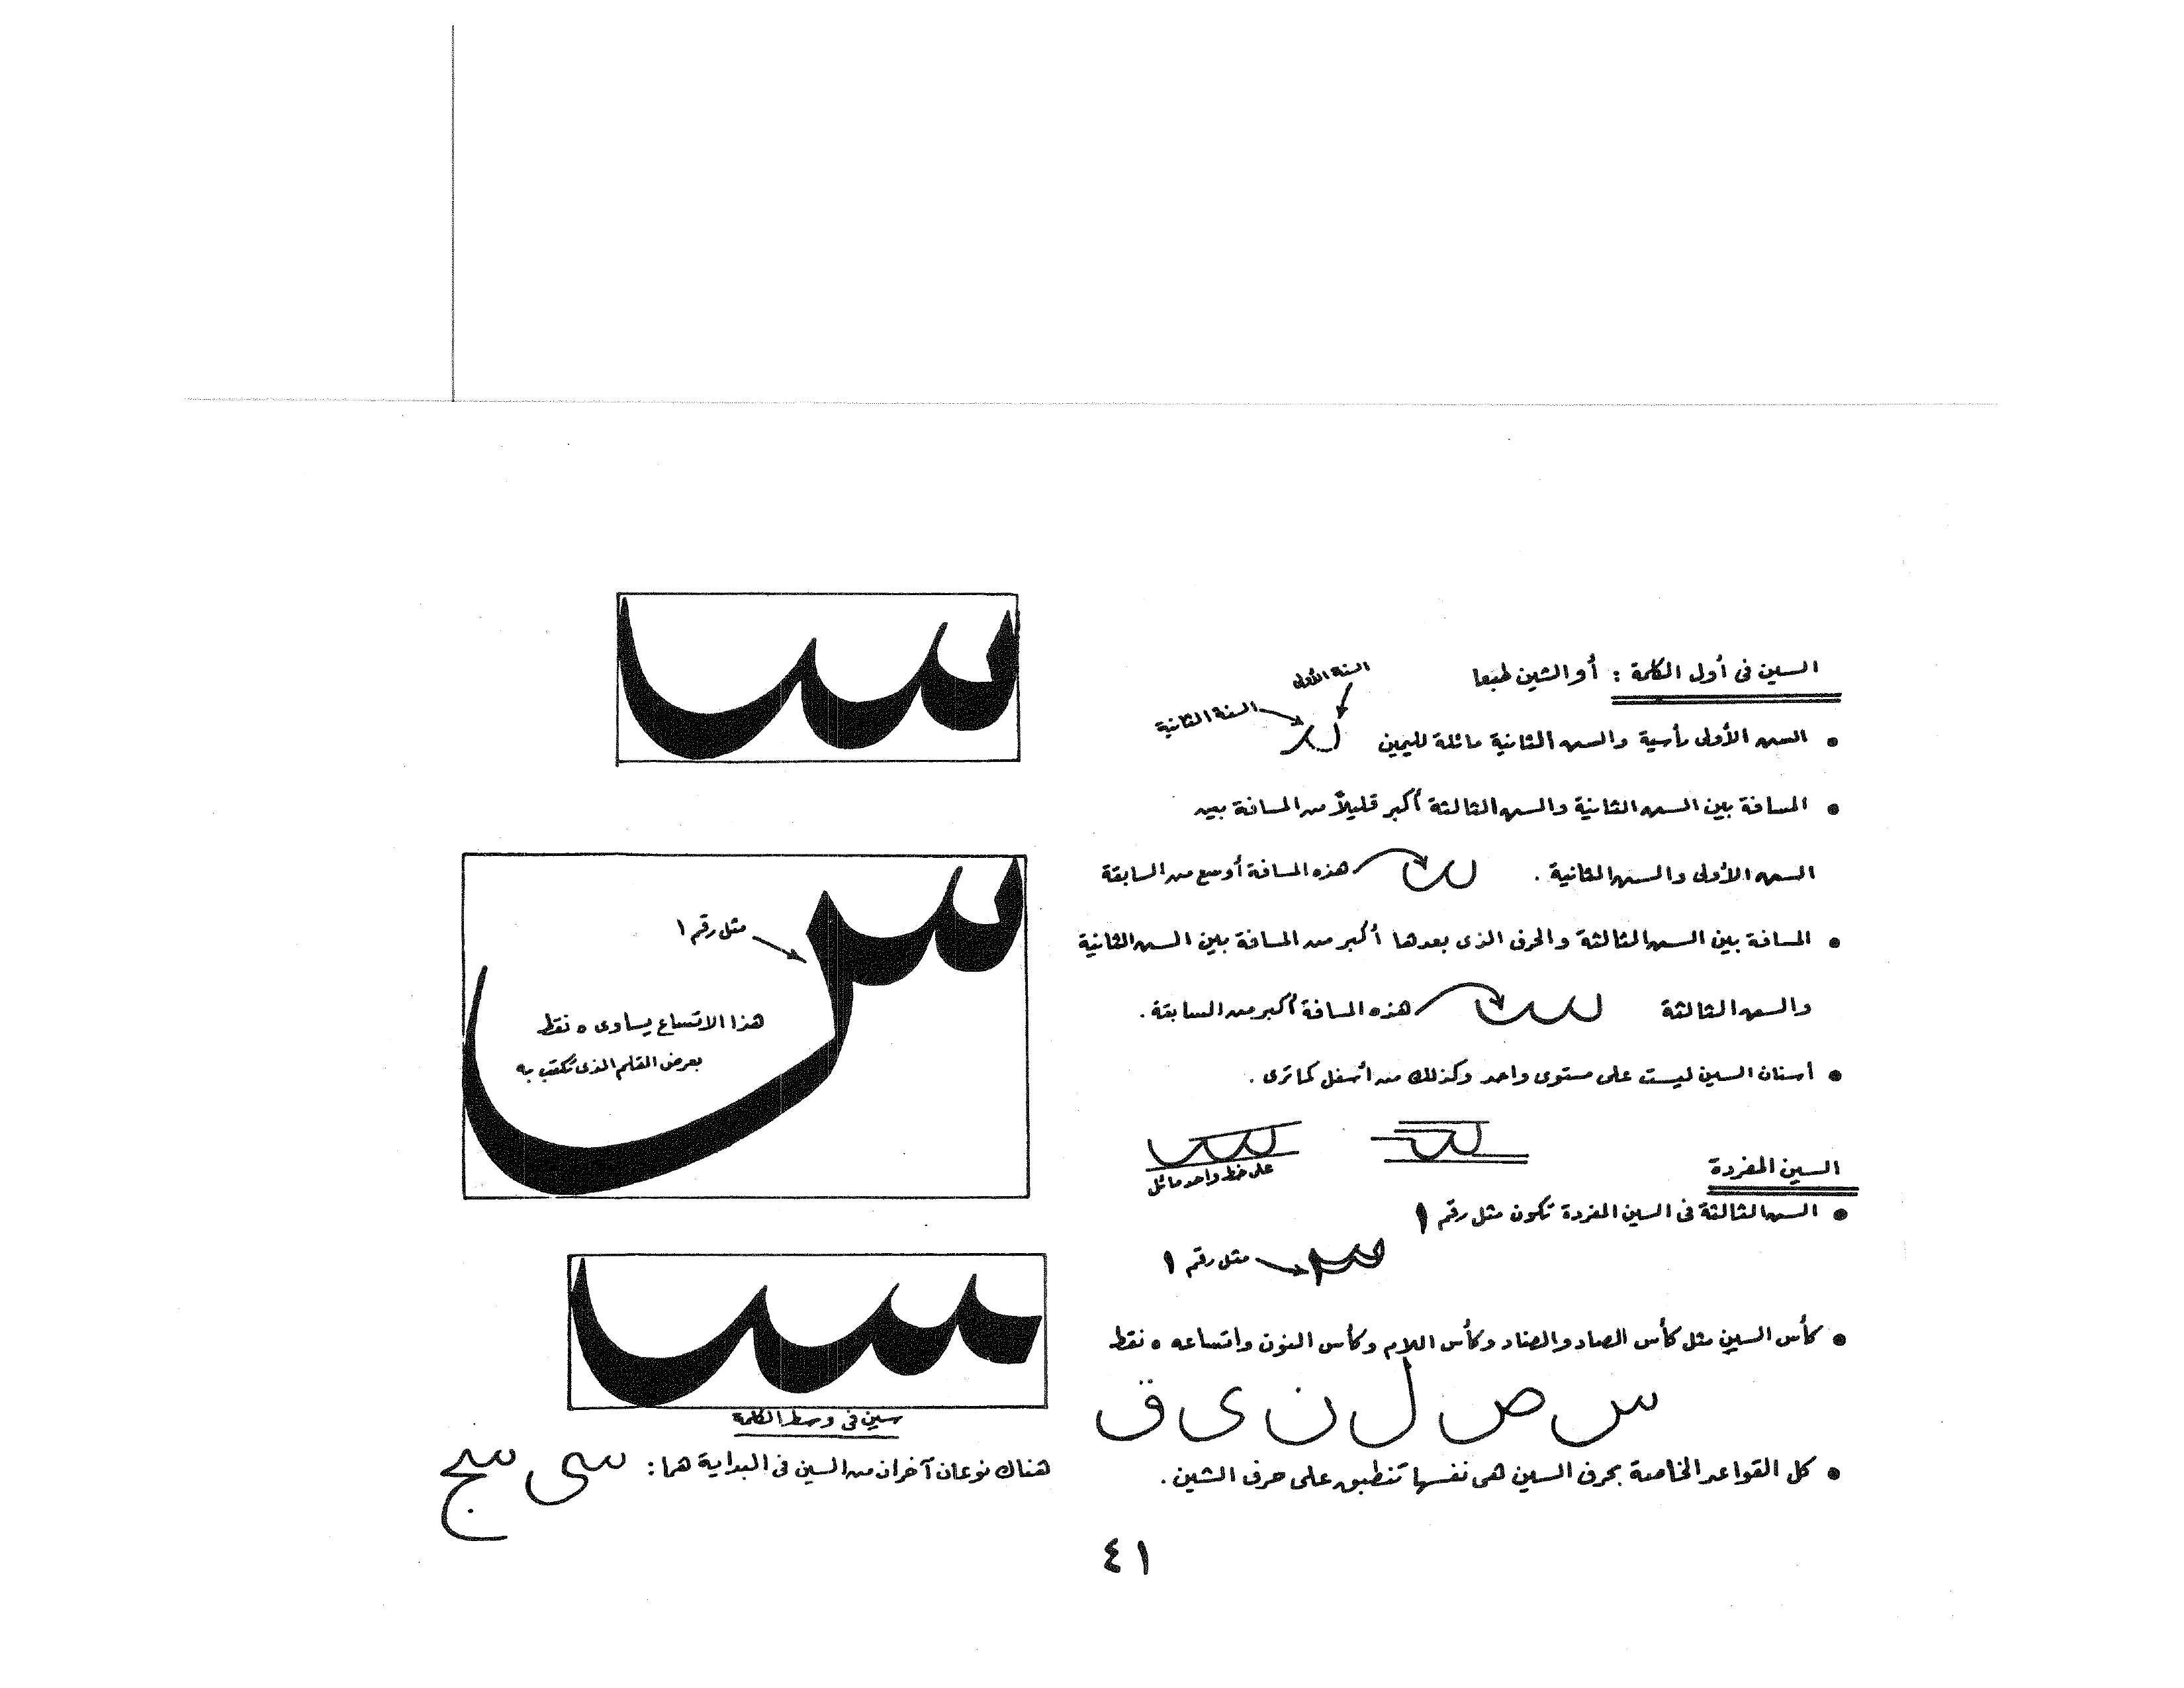 السين فى أول الكلمة : أو الشين طبعا
السنة الأولى
السنة الثانية
• السن الأولى رأسية والسن الثانية مائلة لليمين
• المسافة بين السن الثانية والسن الثالثة أكبر قليلاً من المسافة بين
السن الأولى والسن الثانية .
هذه المسافة أوسع من السابقة
• المسافة بين السن الثالثة والحرف الذى بعدها أكبر من المسافة بين السن الثانية
والسن الثالثة
هذه المسافة أكبر من السابقة .
• أسنان السين ليست على مستوى واحد وكذلك من أسفل كما ترى .
على خط واحد مائل
السين المفردة
• السن الثالثة فى السين المفردة تكون مثل رقم ١
مثل رقم ١
• كأس السين مثل كأس الصاد والضاد وكأس اللام وكأس النون واتساعه ٥ نقط
س ص ل ن ى ق
• كل القواعد الخاصة بحرف السين هى نفسها تنطبق على حرف الشين .
سـ
س
مثل رقم ١
هذا الاتساع يساوى ٥ نقط
بعرض القلم الذى تكتب به
ـسـ
سين فى وسط الكلمة
هناك نوعان آخران من السين فى البداية هما : سى سج
٤١